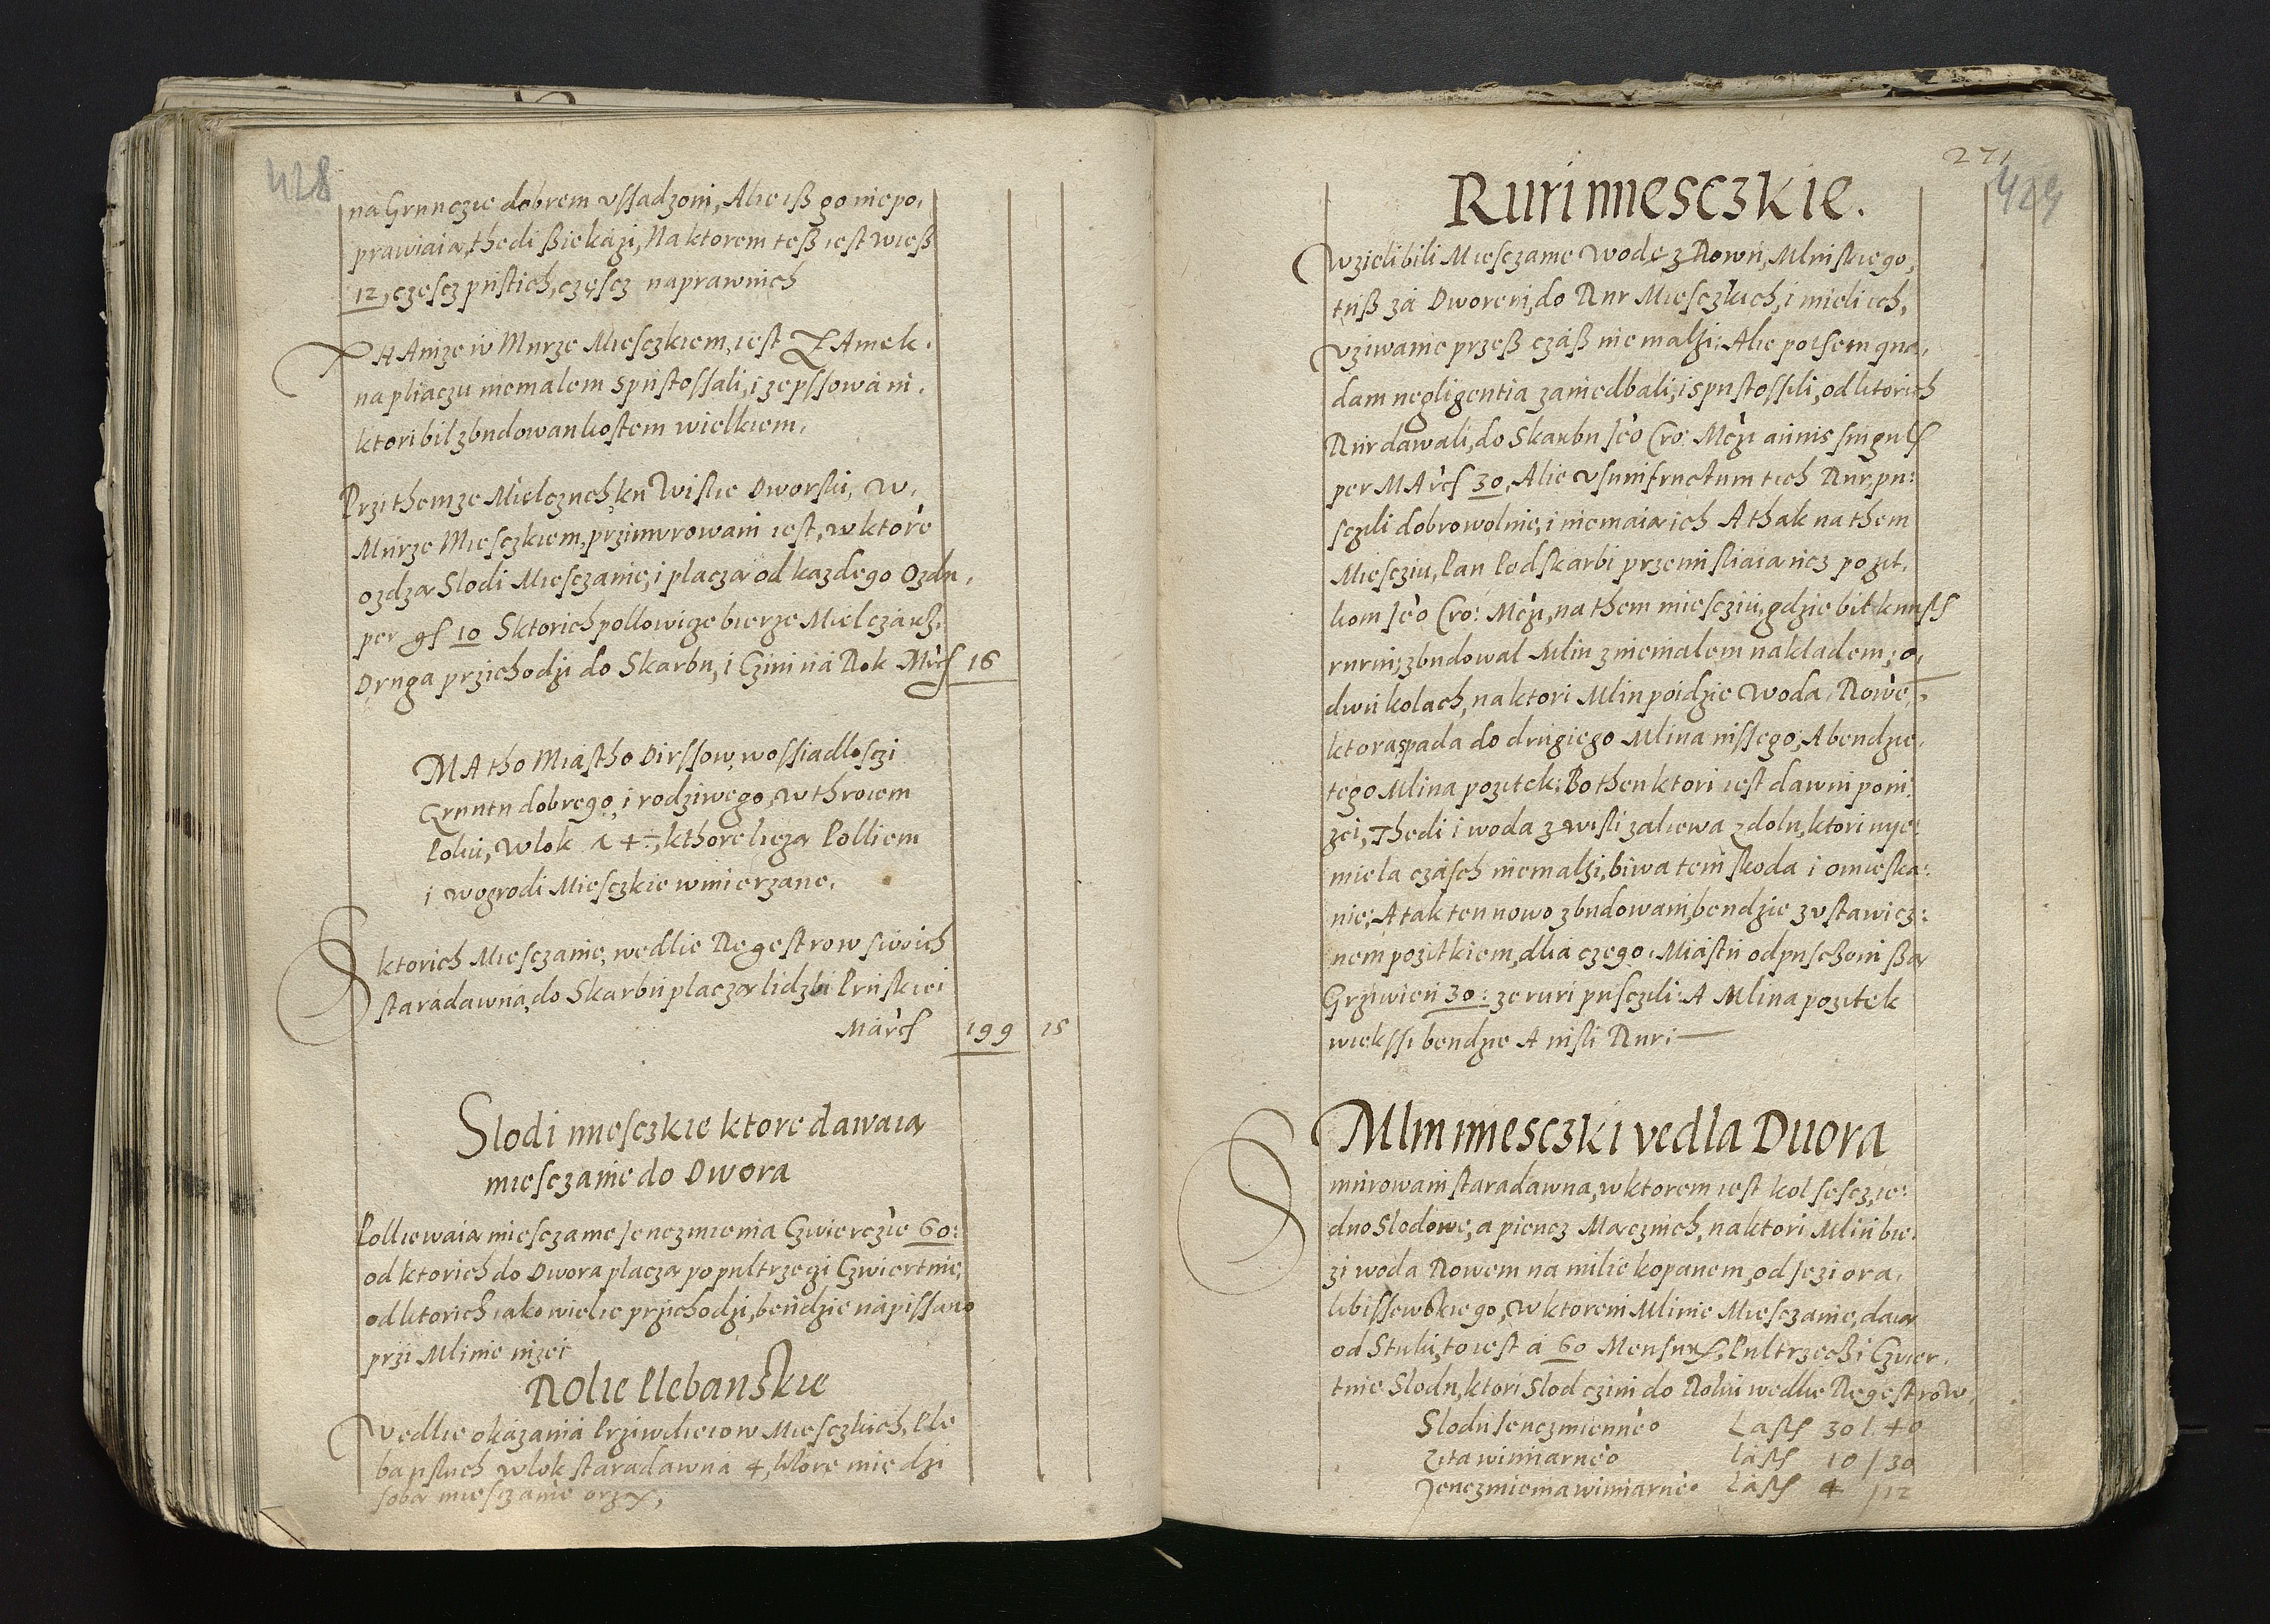 428
na Grunczie dobrem ussadzoni, Alie iß go niepo,
prawiaią, thedi ßie kazi, Na ktorem teß iest wieß
12, częscz pustich, częscz naprawnich
TAmże w Murze Miesczkiem, iest ZAmek.
na pliaczu niemałem spustossali, i zepssowani.
ktori bil zbudowan kostem wielkiem.
Przi themze Mielcznch, ku Wislie Dworski, w.
Murze Miesczkiem, przimurowani iest, w ktore
ozdzą Slodi Miesczanie, i placzą od kazdego Ozdu,
per gſ 10 S ktorich pollowicze bierze Mielczarz,
Druga przichodzi do Skarbu, i Czini na Rok Mrcſ 16
MA tho Miastho Dirssow, w ossiadlosczi
Gruntu dobrego, i rodziwego, w throiem
Poliu, Wlok , kthore liczą Polliem
i w ogrodi Miesczkie wmierzane.
S ktorich Miesczanie, wedlie Regestrow swoich
staradawna, do Skarbu placzą lidzbi Pruskiei
Marcſ 199 15
Slodi miesczkie ktore dawaią
miesczanie do Dwora
Polliewaią miesczanie Jenczmienia Czwierczie 60:
od ktorich do Dwora placzą po pultrzegi Czwiertnie,
od ktorich iako wielie przichodzi, bendzie napissano
przi Mlinie nizei
Rolie Plebanskie
Wedlie okazania Przwilieiow Miesczkich, Ple
banskich wlok staradawna 4, ktore miedzi
sobą miesczanie orzą,
271
429
Ruri miesczkie.
Wzieli bili Miesczanie Wodę z Rowu, Mlinskiego,
tuß za Dworem, do Rur Miesczkich, i mieli ich,
uziwanie przeß czaß niemalzi: Alie potsem qua,
dam negligentia zaniedbali, i spustossili, od ktorich
Rur dawali, do Skarbu Jeo Kro: Mczi annis singulſ
per MArcſ 30, Alie usumfructum tich Rur, pu:
sczili dobrowolnie, i niemaią ich A thak na them
Miesczu, Pan Podskarbi przemisliaiancz pozit,
kom Jeo Kro: Mczi, na them miesczu, gdzie bil kunst
rurni, zbudowal Mlin z niemalem nakladem, o,
dwu kolach, na ktori Mlin poidzie Woda, Rowe,
ktora spada do drugiego Mlina nissego, A bendzie
tego Mlina pozitek: Bo then ktori iest dawni poni,
zei, Thedi i woda z wisli zaliewa z dolu, ktori nye
miela czasch niemalzi, biwa tem skoda i omieska:
nie; A tak ten nowo zbudowani, bendzie z ustawicz:
nem pozitkiem, dlia czego: Miastu odpusczeni ßą
Grziwien 30: ze ruri pusczili: A Mlina pozitek
wiekssi bendzie A nisli Rur:
Mlin miesczki vedla Duora
S murowani staradawna, w ktorem iest kol sescz, ie:
dno Slodowe, a piencz Mącznich, na ktori Mlin bie,
zi woda Rowem na milie kopanem, od Jeziora,
libissowskiego, W ktorem Mlinie Miesczanie, daią
od Stuki, to iest a 60 Mensurſ, Pultrzechi Czwier,
tnie Slodu, ktori Slod czini do Roku wedlie Regestrow,
Slodu Jenczmienneo Lastſ 30 l. 40
Zita wimiarneo Lastſ 10 / 30
Jenczmienia wimiarneo Lastſ 4 / 12